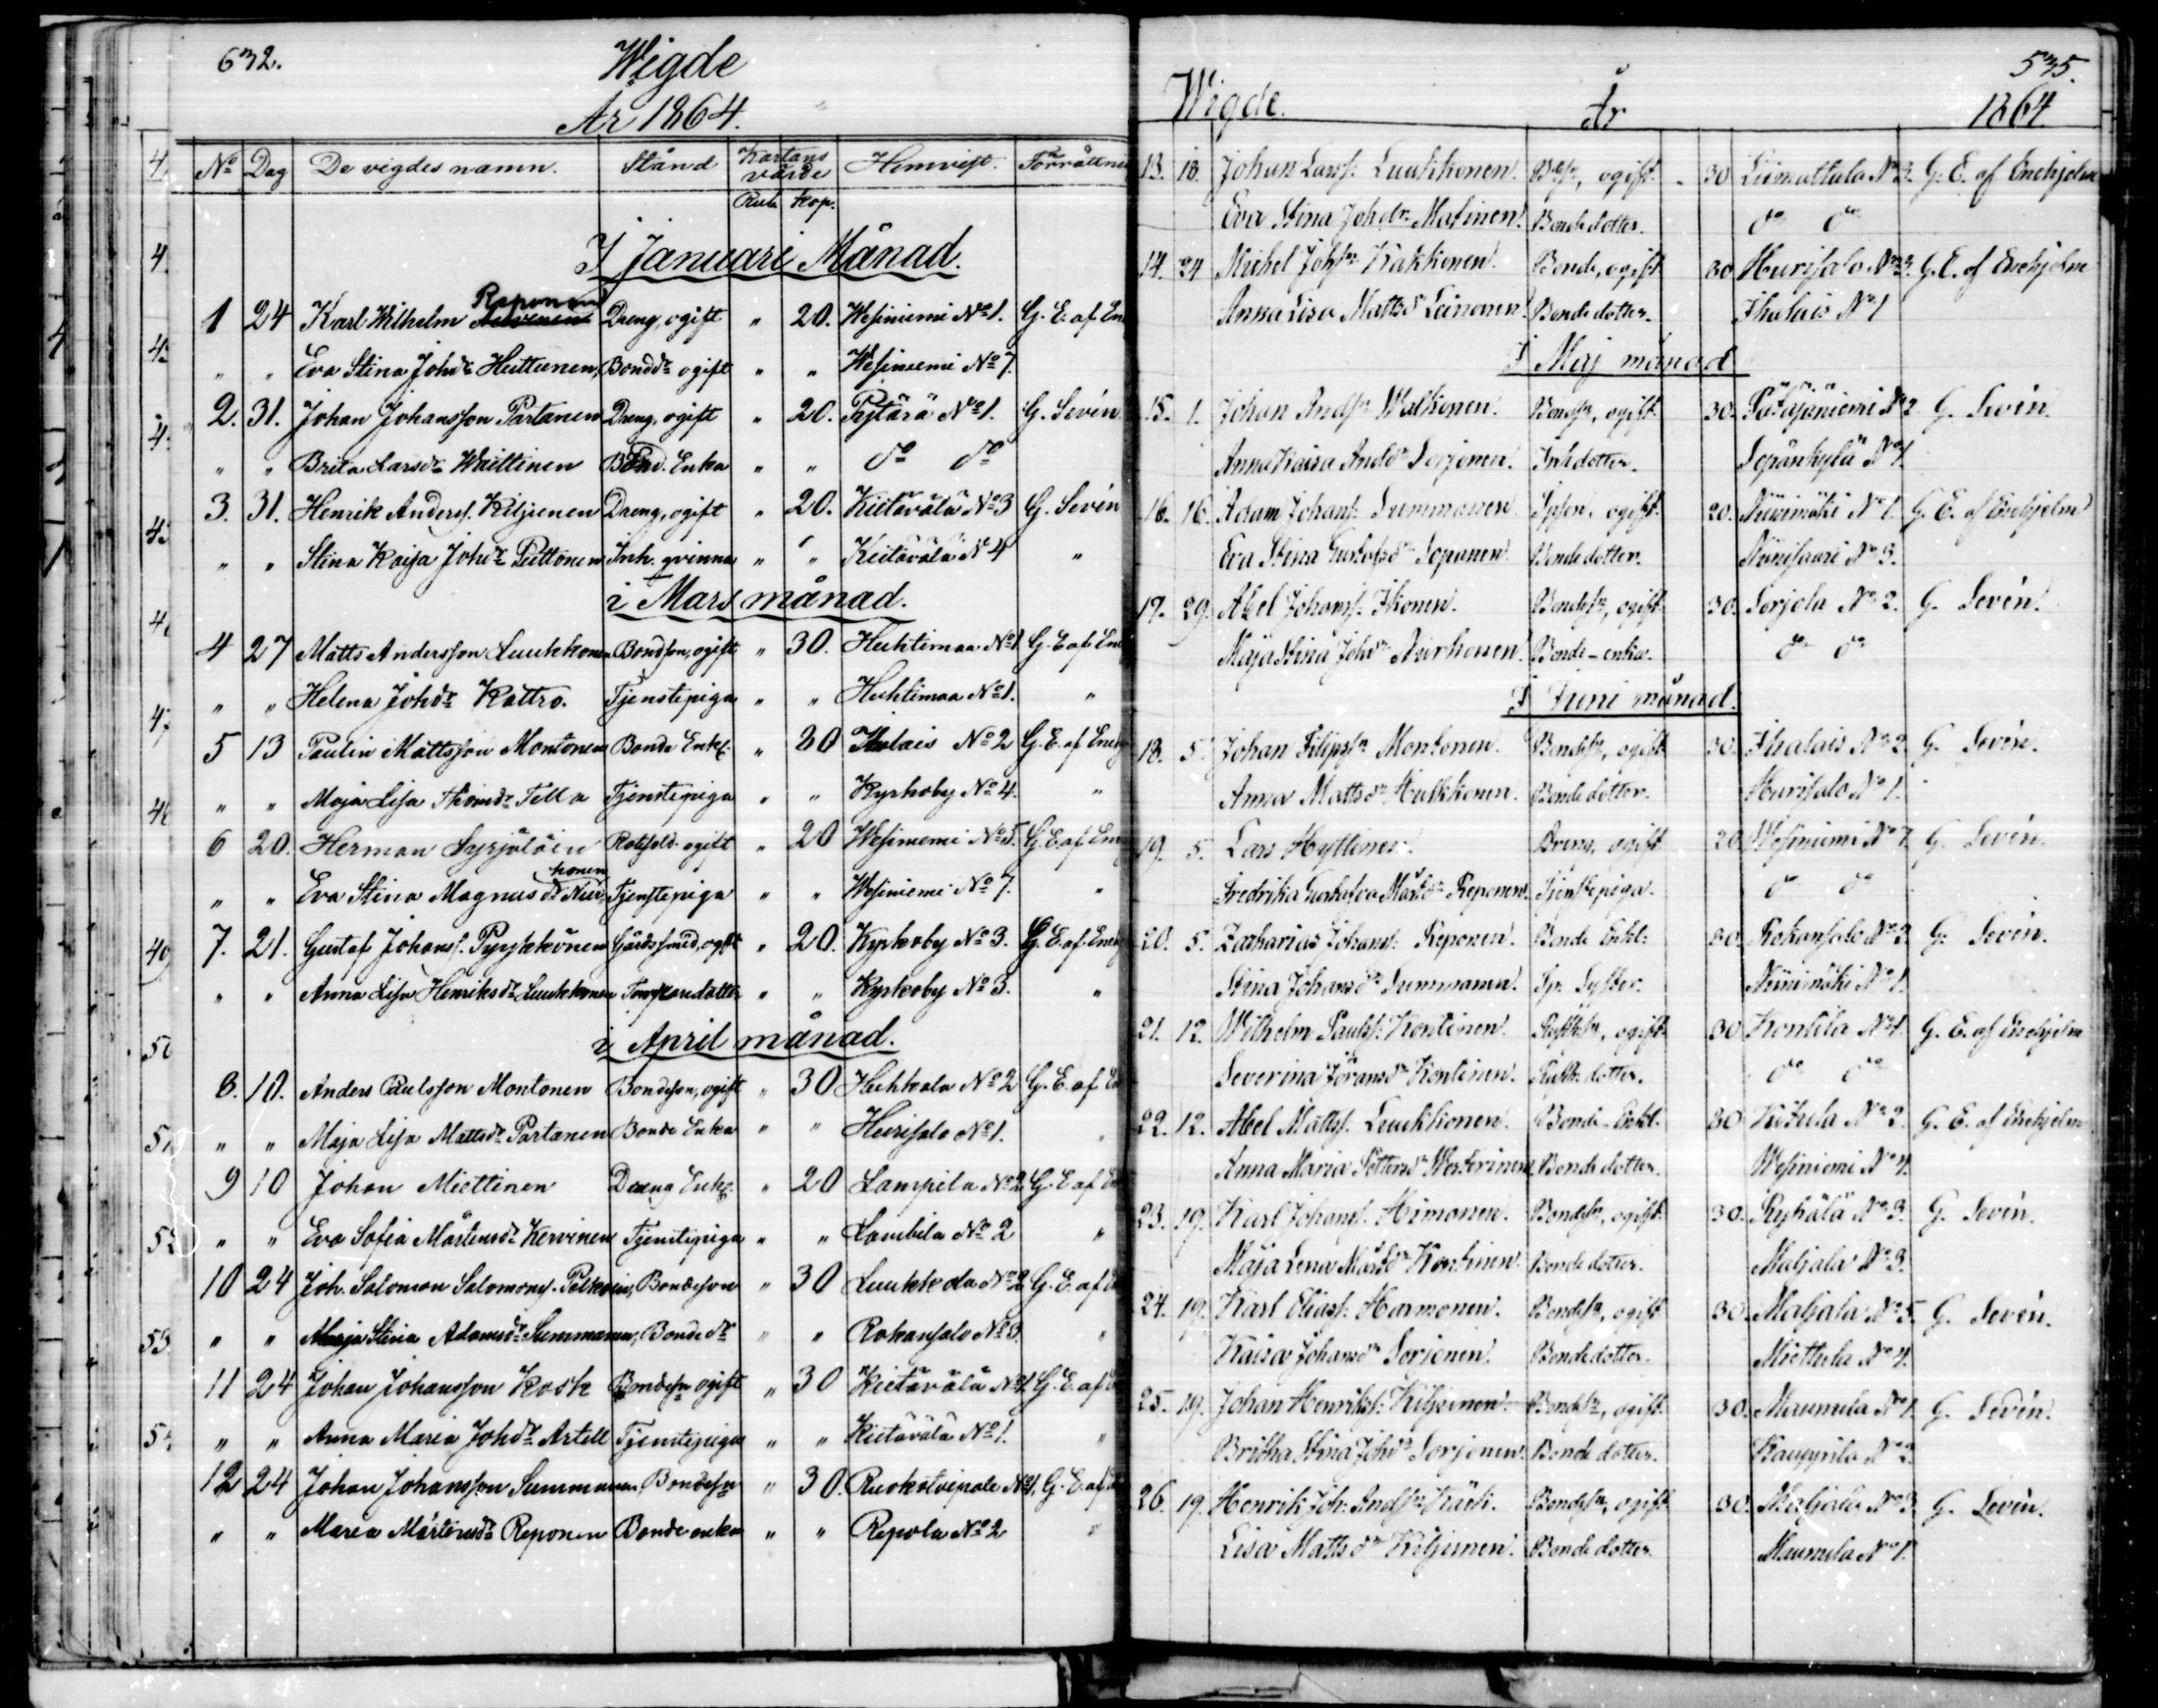 632.
Wigde
År 1864.
No Dag De vigdes namn. Stånd Kartans värde Hemvist. Förrättnin
Rub. Kop.
I Januari Månad.
Reponen
1 24 Karl Wilhelm Dreng, ogift " 20. Wesiniemi No 1. G. E. af En
" " Eva Stina Johdr Huttunen, Bonddr ogift " " Wesiniemi No 7.
2. 31. Johan Johansson Partanen Dreng, ogift " 20. Pytärä No 1. G. Sevén
" " Brita Larsdr Waittinen Enka " " do do
3. 31. Henrik Anderss. Kiljunen Dreng, ogift " 20. Kiitävälä No 3 G. Sevén
" " Stina Kaisa Johdr Puttonen Inh. qvinna " " Kiitävälä No 4 "
i Mars månad.
4 27 Matts Andersson Luukkonen Bondson, ogift " 30. Huhtimaa No 1 G. E af En
" " Helena Johdr Kattro. Tjenstepiga " " Huhtimaa No 1. "
5 13 Paulin Mattsson Montonen Bonde Enkl. " 30 Ihalais No 2 G. E. af Eneh
" " Maja Lisa Thomdr Tella Tjenstepiga " " Kyrkoby No 4. "
6 20. Herman Syrjäläin Rotesold. ogift " 20 Wesiniemi No 5. G. E. af Ene
honen
" " Eva Stina Magnusdr Niu Tjenstepiga " " Wesiniemi No 7. "
7. 21. Gustaf Johanss. Pyykkönen Gårdssmed, ogift " 20. Kyrkoby No 3. G. E. af Ene
" " Anna Lisa Henriksdr Luukkonen " " Kyrkoby No 3. "
i April månad.
8. 10. Anders Paulsson Montonen Bondeson, ogift " 30 Huhkala No 2 G. E. af En
" " Maja Lisa Mattsdr Partanen Bonde Enka " " Hurisalo No 1. "
9 10 Johan Miettinen Dreng Enkl. " 20 Lampila No 2 G. E af E
" " Eva Sofia Mårtensdr Kervinen Tjenstepiga " " Lambila No 2 "
10 24 Joh. Salomon Salomons. Pelkoin, Bondeson " 30 Luukkola No 2 G. E. af E
" " Maja Stina Adamsdr Summanen, Bonde dr " " Rokansalo No 3. "
11 24 Johan Johansson Kosk Bondeson ogift " 30 Kietävälä No 1 G. E. af E
" " Anna Maria Johdr Artell Tjenstepiga " " Kietävälä No 1. "
12 24 Johan Johansson Summanen, Bondeson " 30. Ruokotaipale No 1, G. E af E
" " Maria Mårtensdr Reponen Bonde enka " " Repola No 2 "
Wigde. År 1864
535.
13. 18. Johan Larss. Luukkonen. Bdsn, ogift. 30 Liimattala No 3. G. E. af Enehjelm
Eva Stina Johdr Matinen. Bondedotter. do do
14. 24 Michel Johsn Kakkonen. Bonde, ogift 30 Hurisalo No 3. G. E. af Enehjelm
Anna Lisa Mattsdr Leinonen. Bondedotter. Ihalais No 1
I Maj månad
15. 1. Johan Andsn Walkonen. Bondsn, ogift. 30. Patajaniemi No 2 G. Sevén.
Anna Kaisa Andsdr Sorjonen. Inhdotter. Sepänkylä No 1.
16. 16. Adam Johans. Summanen. ogift. 20. Niinimäki No 1. G. E. af Enehjelm
Eva Stina Gustafsdr Sopanen. Bondedotter. Niinisaari No 3.
17. 29. Abel Johans. Ikonen. Bondesn, ogift 30. Sorjola No 2. G. Sevén.
Maja Stina Johdr Nurhonen. Bonde-enka. do do
I Juni månad.
18. 5. Johan Filipsn Montonen. Bondesn, ogift 30. Ihalais No 2. G. Sevén.
Anna Mattsdr Hulkkonen. Bondedotter. Hurisalo No 1.
19. 5. Lars Hyttinen. Dreng, ogift 20. Wesiniemi No 7. G. Sevén.
Fredrika Gustafva Mårtdr Reponen. Tjenstepiga. do do
20. 5. Zacharias Johans. Reponen. Bonde Enkl. 30. Rokansalo No 2. G. Sevén.
Stina Johansdr Summanen. Syster. Niinimäki No 1.
21. 12. Wilhelm Pauls. Kontinen. ogift 30 Konttila No 1. G. E. af Enehjelm
Severina Göransdr Kontinen. dotter. do do
22. 12. Abel Matts. Luukkonen. Bonde-Enkl. 30 No 2. G. E. af Enehjelm
Anna Maria Pettersdr Westerinen, Bondedotter. Wesiniemi No 4.
23. 19. Karl Johans. Himonen. Bondesn, ogift. 30. Ryhälä No 3. G. Sevén.
Maja Lena Mårtdr Kontinen. Bondedotter. Maljala No 3.
24. 19. Karl Elias. Harmonen. Bondesn, ogift 30. Maljala No 5. G. Sevén.
Kaisa Johansdr Sorjonen. Bondedotter. Miettula No 4.
25. 19. Johan Henriks. Kiljunen. Bondesn, ogift. 30. Maunula No 1. G. Sevén.
Britha Stina Johdr Sorjonen. Bondedotter. Kauppila No 2.
26. 19. Henrik Joh. Andsn Käck. Bondesn, ogift 30. Maljala No 3. G. Sevén.
Lisa Mattsdr Kiljunen. Bondedotter. Maunula No 1.